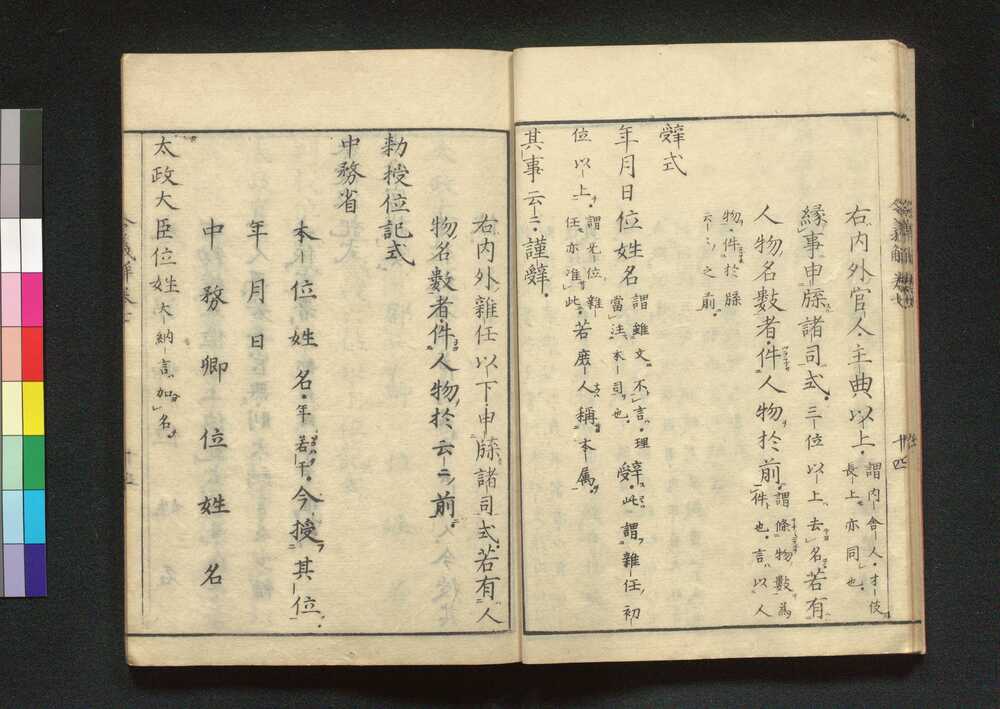 右内外官人主典以上謂内舎人才伎
長上亦同也
縁事申牒諸司式三位以上去名若有
人物名数者件人物於前謂條物数為
件也言以人
物件於牒
云々之前
辭式
年月日位姓名謂雖文不言理
當注本司也辭此謂雜任初
位以上謂先位雜
任亦准此若庶人稱本属
其事云云謹辭
右内外雜任以下申牒諸司式若有人
物名數者件人物於云云前
勅授位記式
中務省
本位姓名年若干今授其位
年月日
中務卿位姓名
太政大臣位姓大納言加名
令義解卷七
廿四